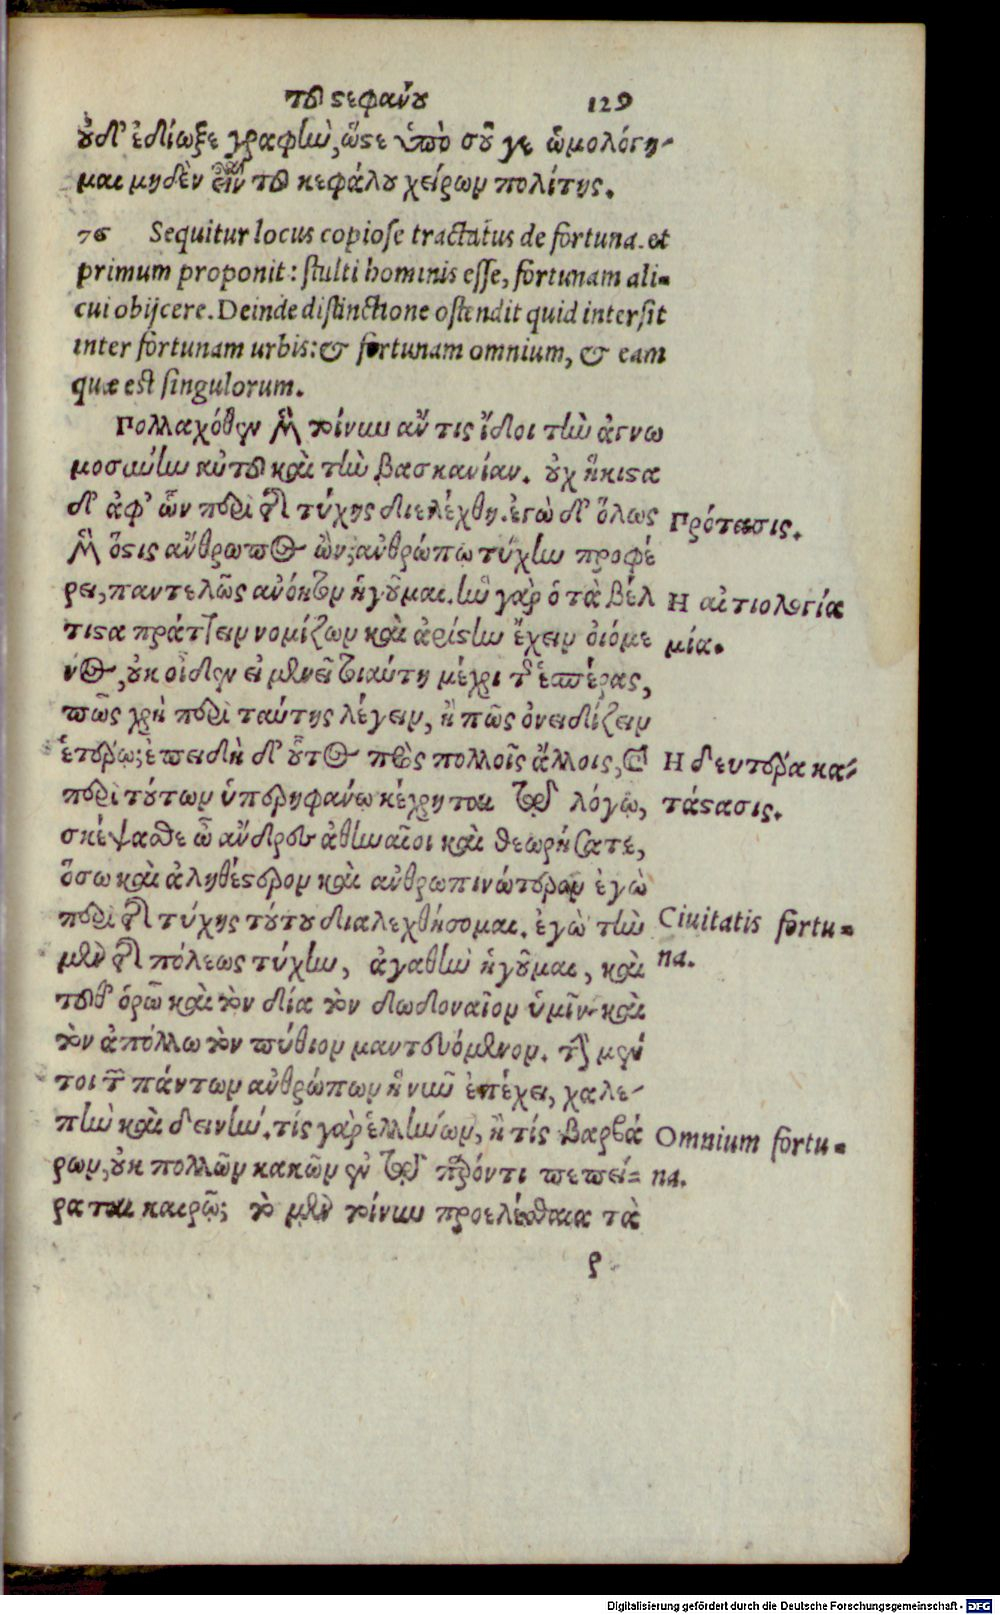 τοῦ στεφάνου 129
οὐδ' ἐδίωξε γραφὴν, ὥστε ὑπὸ σοῦ γε ὡμολόγη-
μαι μηδὲν εἶναι τοῦ κεφάλου χείρων πολίτης.
76 Sequitur locus copiose tractatus de fortuna. et
primum proponit: stulti hominis esse, fortunam ali=
cui obijcere. Deinde distinctione ostendit quid intersit
inter fortunam urbis: & fortunam omnium, & eam
quæ est singulorum.
Πολλαχόθεν μὲν τοίνυν ἄν τις ἴδοι τὴν ἀγνω
μοσύνην αὐτοῦ καὶ τὴν βασκανίαν. οὐχ ἥκιστα
δ' ἀφ' ὧν περὶ τῆς τύχης διελέχθη. ἐγὼ δ' ὅλως
Πρότασις.
μὲν ὅστις ἄνθρωπος ὢν, ἀνθρώπῳ τύχην προφέ
ρει, παντελῶς ἀνόητον ἡγοῦμαι. ἣν γὰρ ὁ τὰ βέλ
Η αἰτιολογία
τιστα πράττειν νομίζων καὶ ἀρίστην ἔχειν οἰόμε
μία.
νος, οὐκ οἶδεν εἰ μενεῖ τοιαύτη μέχρι τῆς ἑσπέρας,
πῶς χρὴ περὶ ταύτης λέγειν, ἢ πῶς ὀνειδίζειν
ἑτέρῳ; ἐπειδὴ δ' οὗτος πρὸς πολλοῖς ἄλλοις, καὶ
Η δευτέρα κα-
περὶ τούτων ὑπερηφάνῳ κέχρηται τῷ λόγῳ,
τάστασις.
σκέψασθε ὦ ἄνδρες ἀθηναῖοι καὶ θεωρήσατε,
ὅσῳ καὶ ἀληθέστερον καὶ ἀνθρωπινώτερον ἐγὼ
περὶ τῆς τύχης τούτου διαλεχθήσομαι. ἐγὼ τὴν
Ciuitatis fortu=
μὲν τῆς πόλεως τύχην, ἀγαθὴν ἡγοῦμαι, καὶ
na.
τοῦθ' ὁρῶ καὶ τὸν δία τὸν δωδοναῖον ὑμῖν καὶ
τὸν ἀπόλλω τὸν πύθιον μαντευόμενον. τὴν μέν
τοι τῶν πάντων ἀνθρώπων ἣ νῦν ἐπέχει, χαλε-
πὴν καὶ δεινήν. τίς γὰρ ἑλλήνων, ἢ τίς βαρβά
Omnium fortu=
ρων, οὐκ πολλῶν κακῶν ἐν τῷ παρόντι πεπεί=
na.
ραται καιρῷ; τὸ μὲν τοίνυν προελέσθαι τὰ
ρ
Digitalisierung gefördert durch die Deutsche Forschungsgemeinschaft - DFG